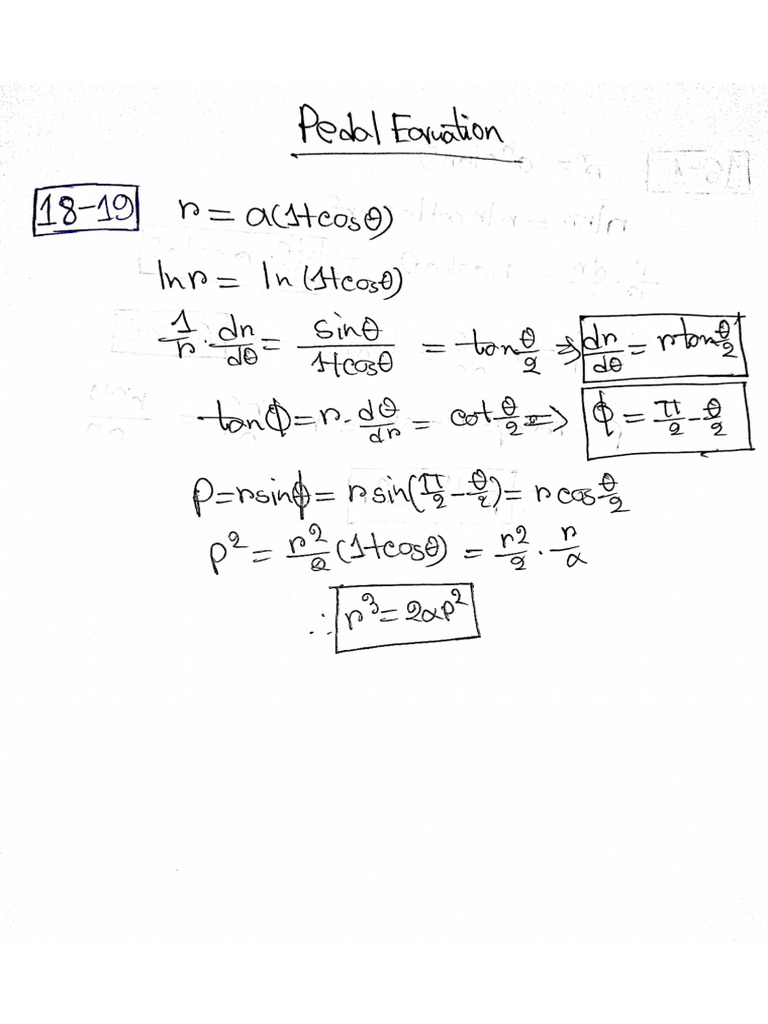 Pedal Equation
18-19 r = a(1+cosθ)
ln r = ln (1+cosθ)
1/r · dr/dθ = sinθ/(1+cosθ) = tan θ/2 ⇒ dr/dθ = r tan θ/2
tanϕ = r · dθ/dr = cot θ/2 ⇒ ϕ = π/2 - θ/2
P = r sinϕ = r sin(π/2 - θ/2) = r cos θ/2
P² = r²/2 (1+cosθ) = r²/2 · r/a
∴ r³ = 2aP²